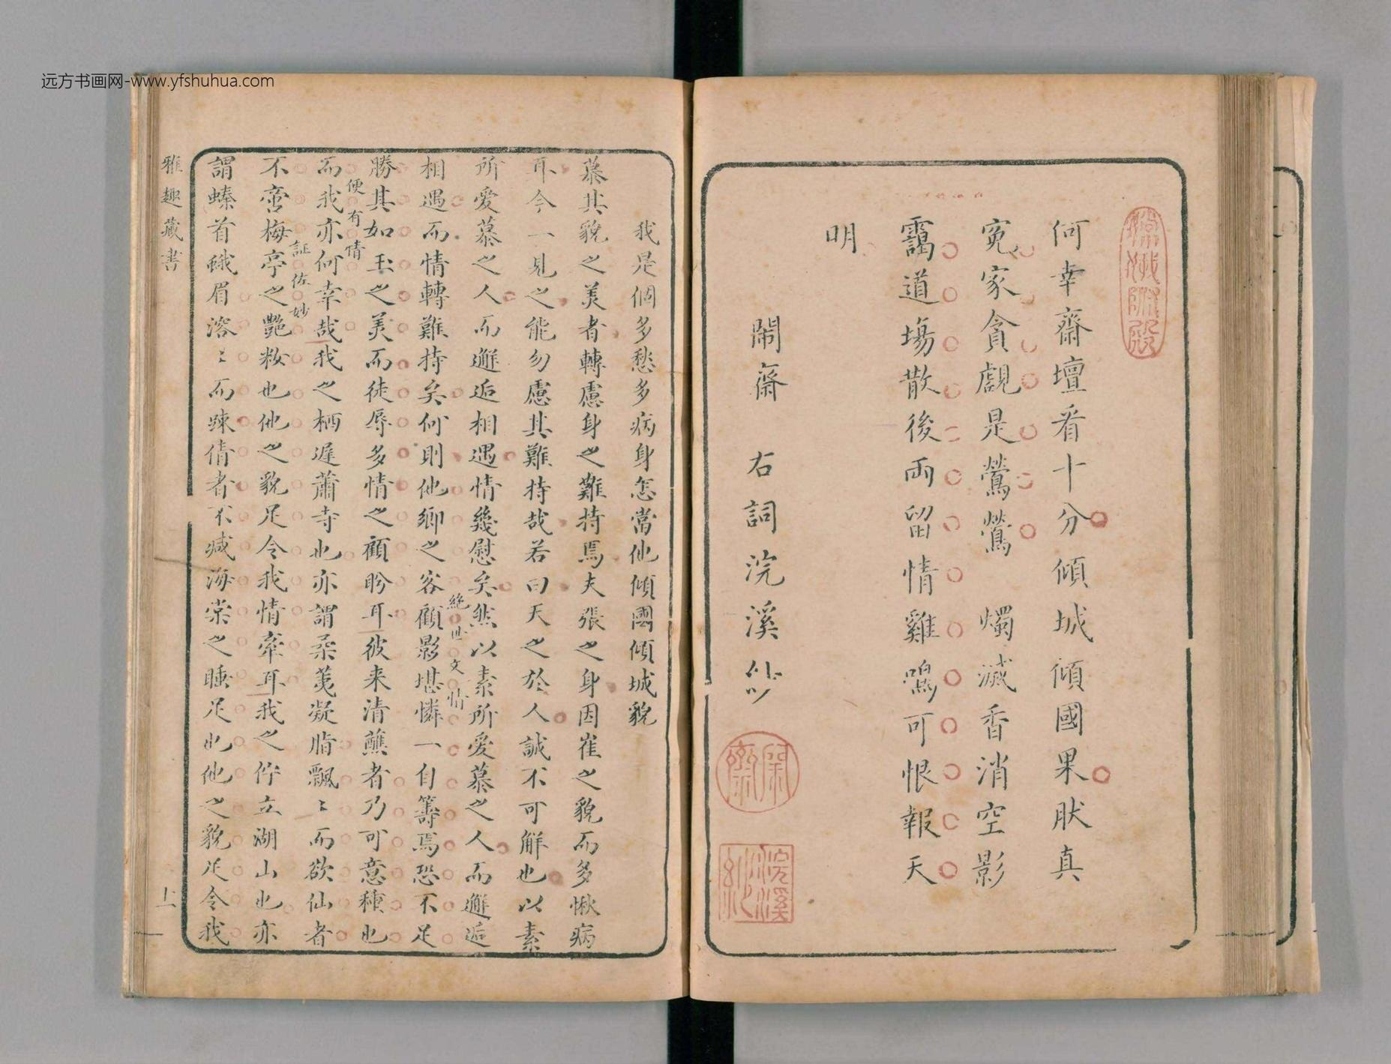 远方书画网-www.yfshuhua.com
何幸齋壇看十分傾城傾國果肰真
寃家貪覷是鶯鶯　燭滅香消空影
靄道塲散後兩留情雞鳴可恨報天
明
鬧齋　右詞浣溪紗
鬧齋
浣溪紗
我是個多愁多病身怎當他傾國傾城貌
慕其貌之美者轉慮身之難持焉夫張之身因崔之貌而多愀病
耳今一見之能勿慮其難持哉若曰天之於人誠不可解也以素
所愛慕之人而邂逅相遇情幾慰矣然以素所愛慕之人而邂逅
絶世文情
相遇而情轉難持矣何則他卿之容顧影堪憐一自籌焉恐不足
勝其如玉之美而徒辱多情之顧盼耳彼来清蘸者乃可意種也
便有情
而我亦何幸哉我之栖遲蕭寺也亦謂柔荑凝脂飄〻而欲仙者
証佐妙
不啻梅亭之艷粧也他之貌足令我情牽耳我之佇立湖山也亦
謂螓首蛾眉溶〻而踈倩者不减海棠之睡足也他之貌足令我
雅趣藏書
上